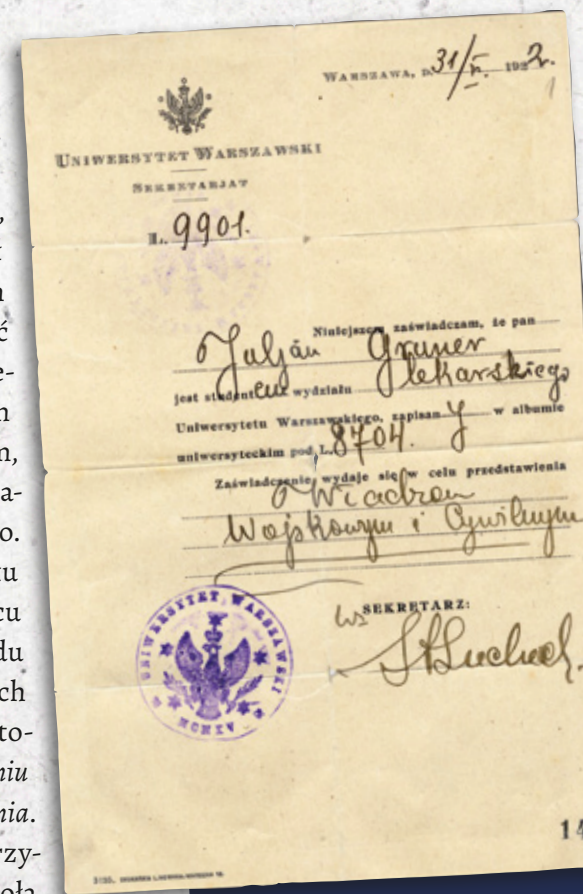 WARSZAWA, D. 31/V. 1922.
UNIWERSYTET WARSZAWSKI
SEKRETARJAT
L. 9901.
Niniejszem zaświadczam, że pan
Juljan Gruner
jest studentem wydziału lekarskiego
Uniwersytetu Warszawskiego, zapisany w albumie
uniwersyteckim pod L. 8704.
Zaświadczenie wydaje się w celu przedstawienia
Władzom
Wojskowym i Cywilnym
SEKRETARZ:
UNIWERSYTET WARSZAWSKI
MCMXV
14
ć
e-
n,
a-
o.
tu
cu
du
ch
to-
niu
nia.
rzy-
oła